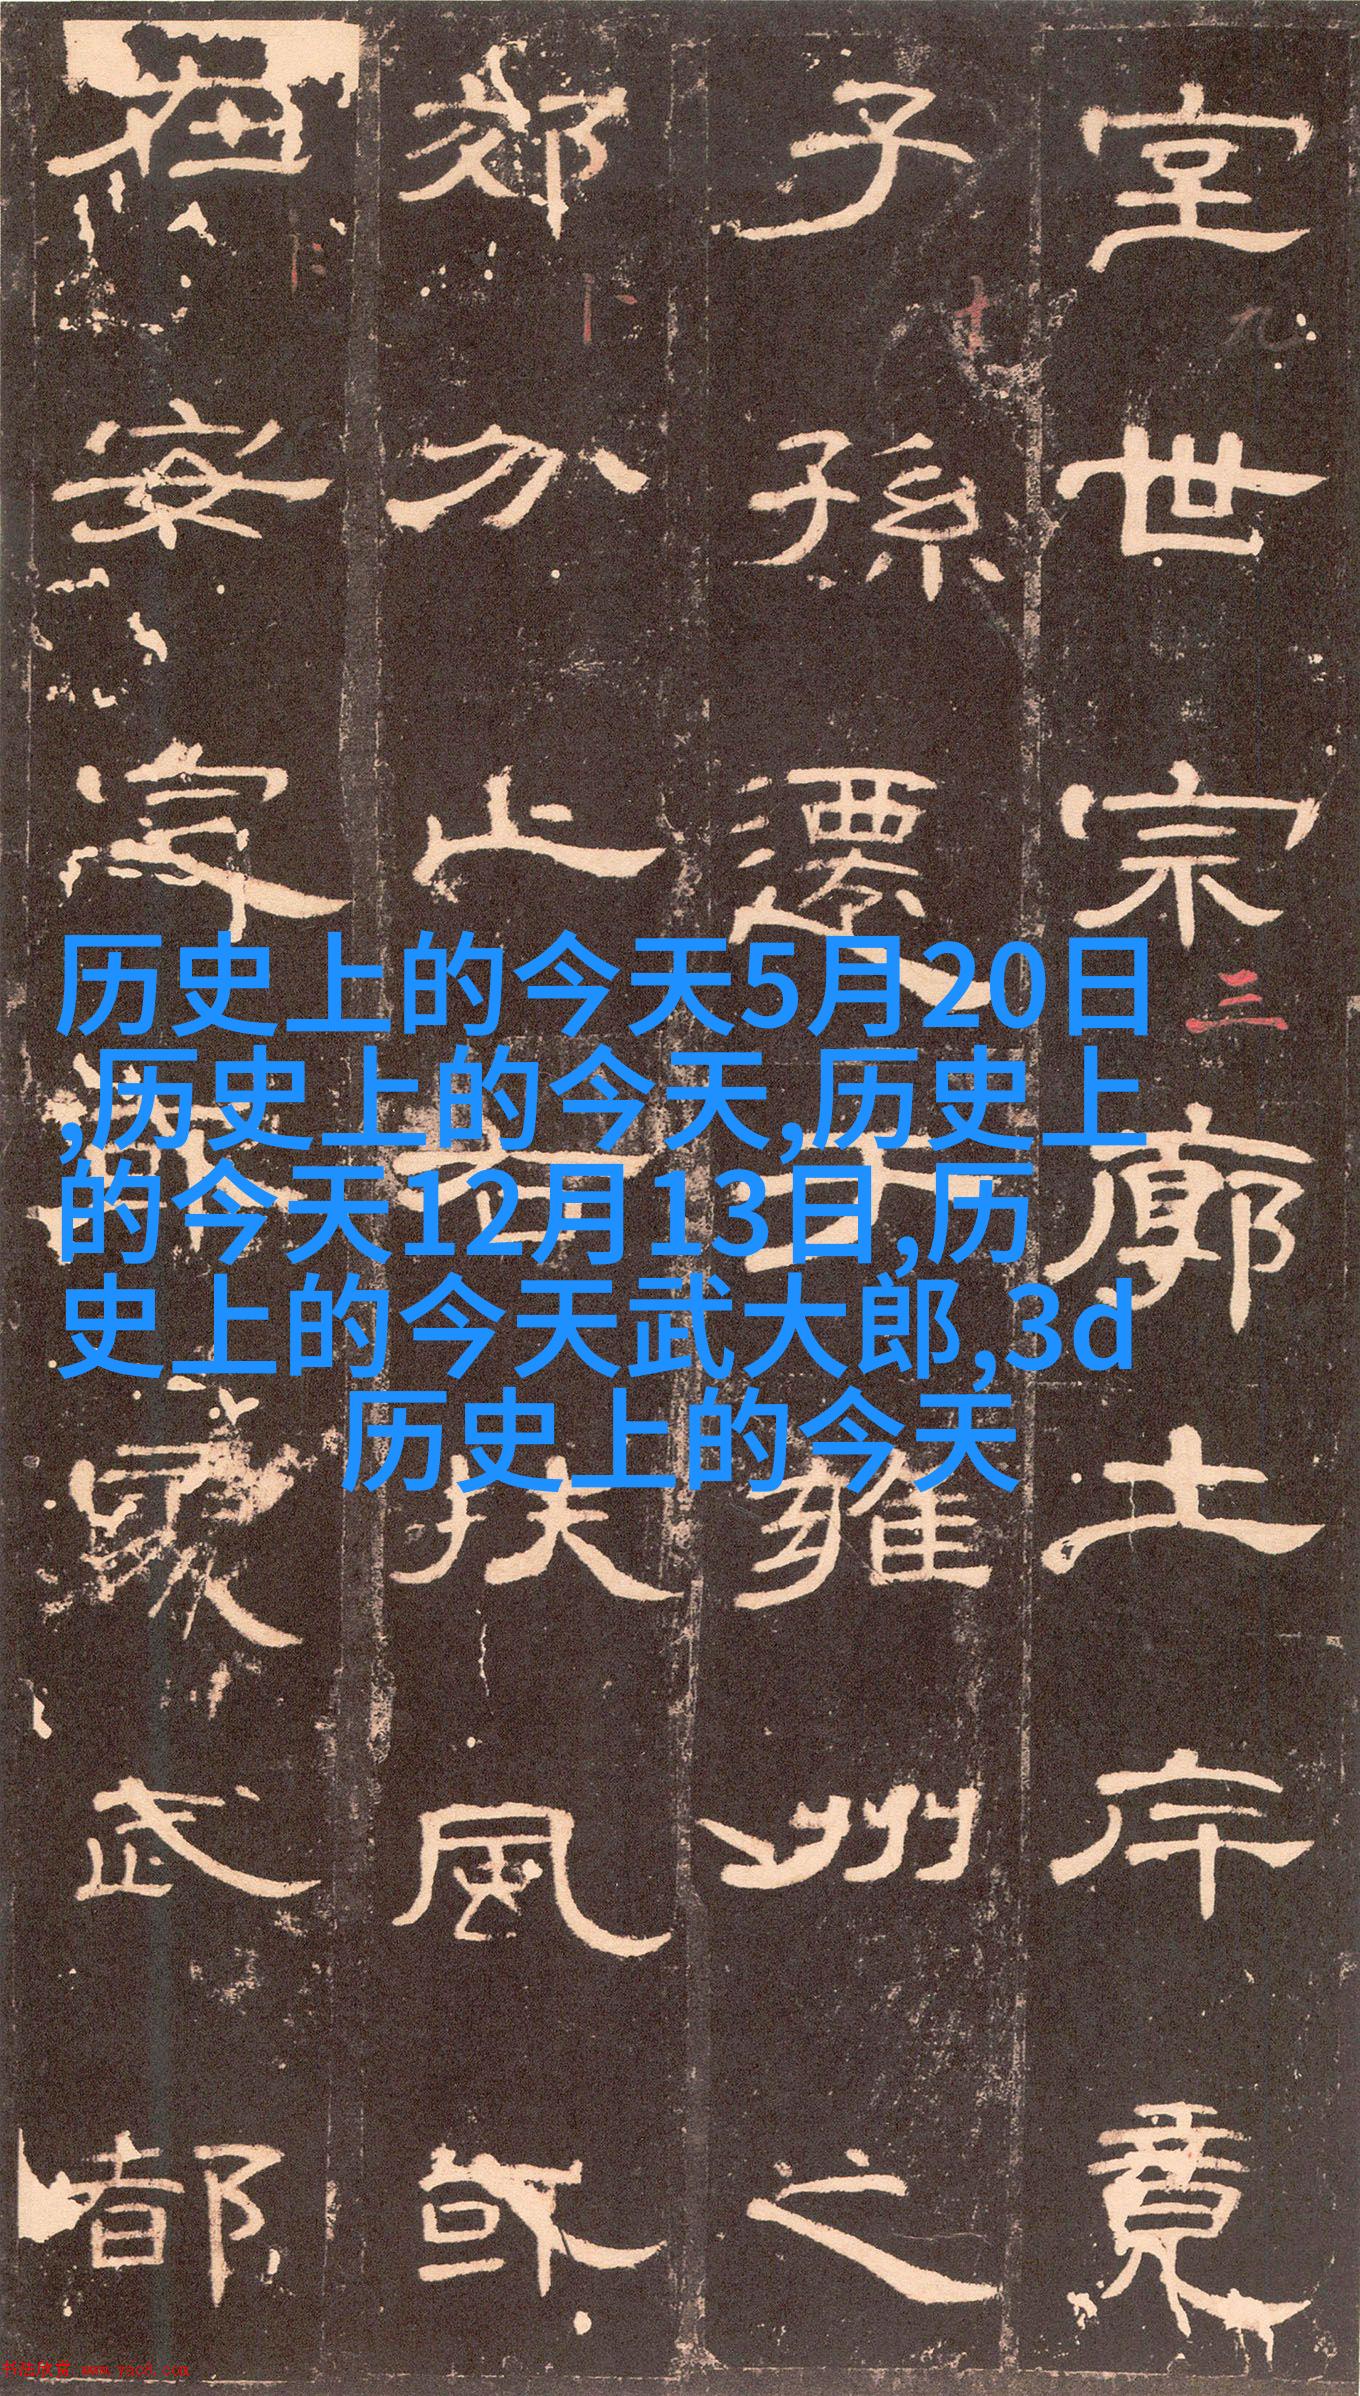 室世宗廓土斥竟
子孫遷于雍州之
郊分止右扶風或
在安定或處武都
历史上的今天5月20日
,历史上的今天,历史上
的今天12月13日,历
史上的今天武大郎,3d
历史上的今天
九
十
三
书法欣赏 www.yac8.com